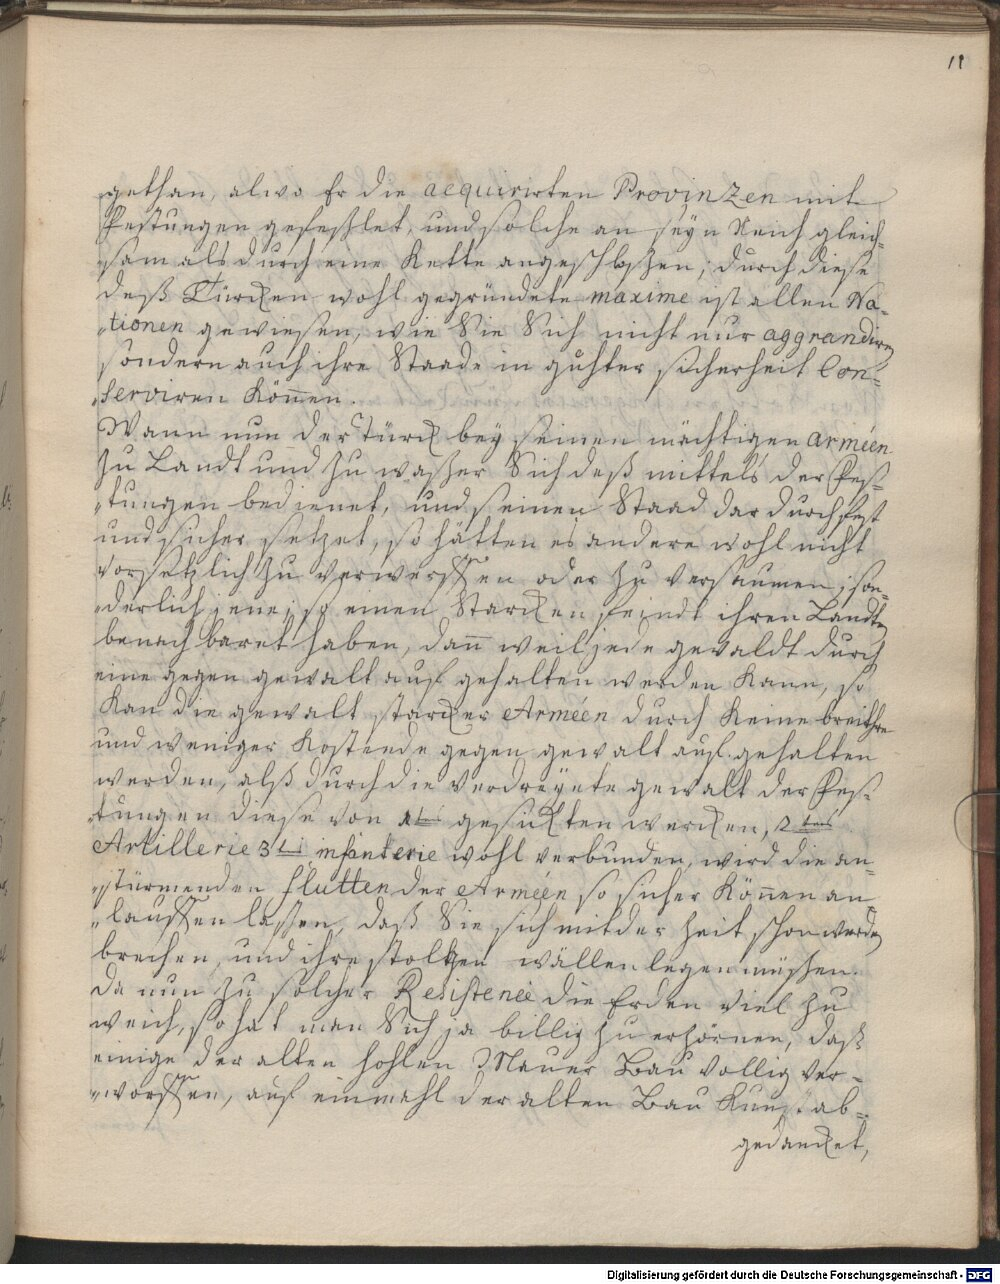 11
gethan, alwo Er die acquirirten Provinzen mit
Festungen gefeßlet, und solche an seyn Reich gleich-
sam als durch eine Kette angeschloßen; durch diese
deß Türcken wohl gegründete maxime ist allen Na-
tionen gewiesen, wie Sie Sich nicht nur aggrandiren
sondern auch ihre Staade in guhter sicherheit Con-
serviren Können.
Wann nun der Türck bey seinen mächtigen Arméen
zu Landt und zu waßer Sich deß mittels der Fes-
tungen bedienet, und seinen Staad dardurch fest
und sicher setzet, so hätten es andere wohl nicht
vorsetzlich zu verwerffen oder zu versäumen; son-
derlich jene, so einen Starcken feindt ihren Landten
benachbaret haben, dann weil jede gewaldt durch
eine gegen gewalt auf gehalten werden Kann, so
Kan die gewalt starcker Arméen durch Keine
und weniger Kostende gegen gewalt auf gehalten
werden, alß durch die verdreyete gewalt der Fes-
tungen diese von 1tens gesickten wercken, 2tens
Artillerie 3tens infanterie wohl verbunden, wird die an-
stürmenden flutten der Arméen so sicher Können an-
lauffen lassen, daß Sie sich mit der Zeit schon werden
brechen, und ihre stoltzen wällen legen müßen.
Da nun zu solcher Resistence die Erden viel zu
weich, so hat man Sich ja billig zu erzörnen, daß
einige der alten hohlen Mauer Bau völlig ver-
worffen, auf einmahl der alten Bau Kunst ab-
gedancket,
Digitalisierung gefördert durch die Deutsche Forschungsgemeinschaft - DFG